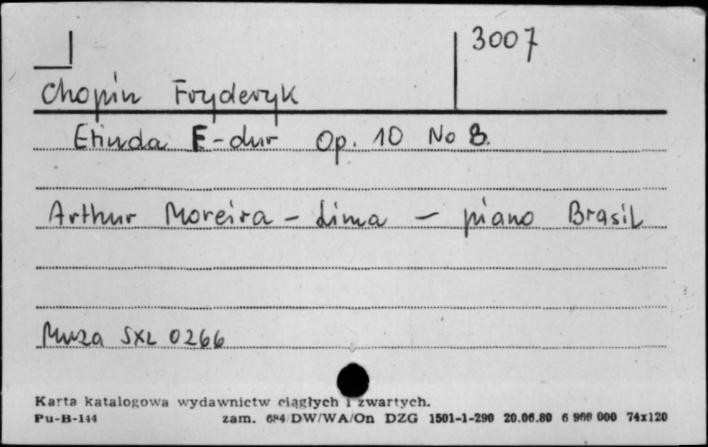 3007
Chopin Fryderyk
Etiuda F-dur Op. 10 No 8.
Arthur Moreira - Lima - piano Brasil
Muza SXL 0266
Karta katalogowa wydawnictw ciągłych i zwartych.
Pu-B-144 zam. 684/DW/WA/On DZG 1501-1-290 20.06.80 6 966 000 74x120